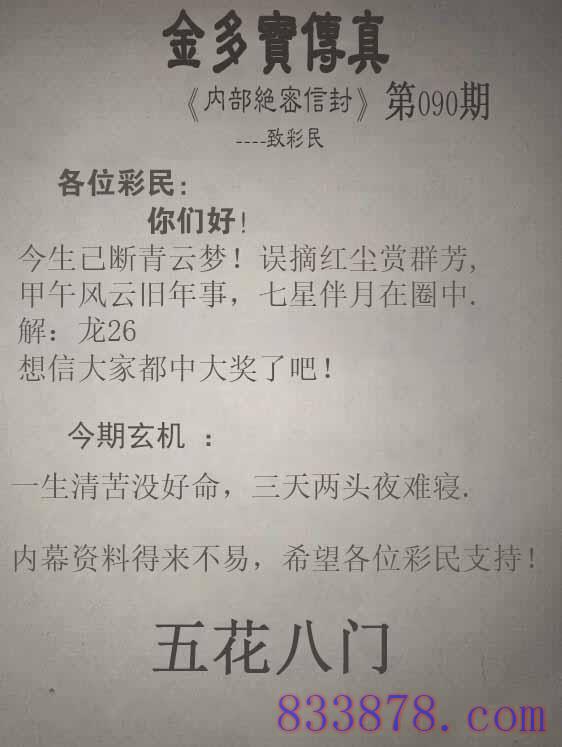 金多寳傳真
《内部絶密信封》第090期
----致彩民
各位彩民:
你们好!
今生已断青云梦! 误摘红尘赏群芳,
甲午风云旧年事，七星伴月在圈中.
解：龙26
想信大家都中大奖了吧!
今期玄机 ：
一生清苦没好命，三天两头夜难寝.
内幕资料得来不易，希望各位彩民支持!
五花八门
833878.com